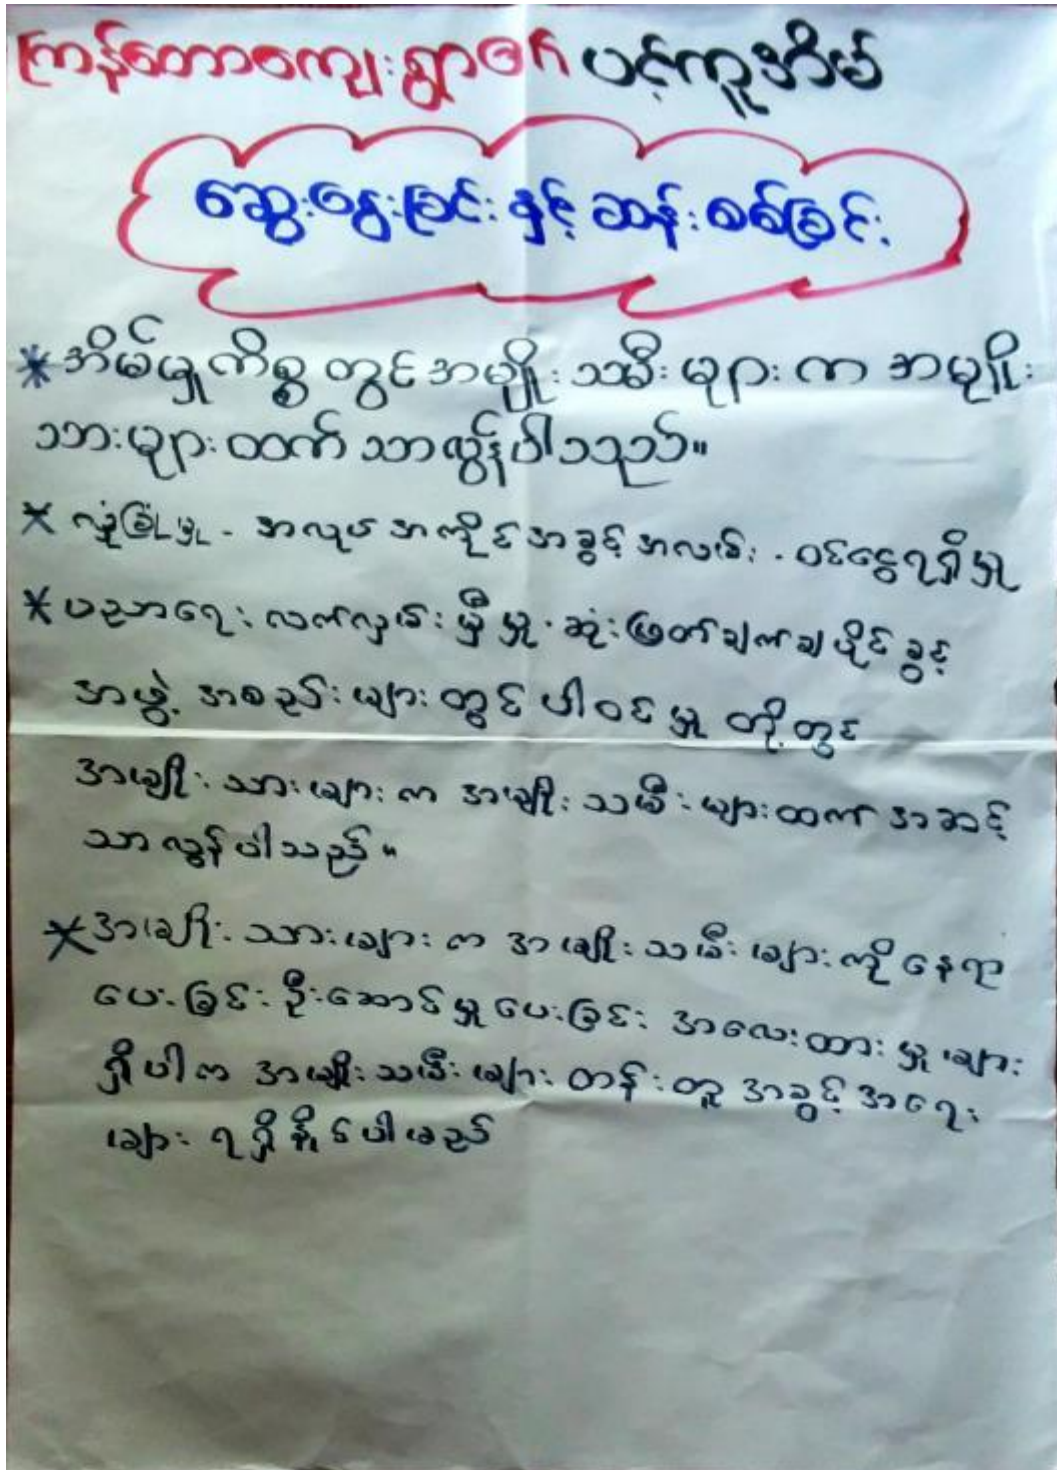 ကြန်တောကျေးရွာ၏ ပင့်ကူအိမ်
ဆွေးနွေးခြင်း နှင့် ဆန်းစစ်ခြင်း
* အိမ်မှုကိစ္စ တွင် အမျိုးသမီးများ က အမျိုး
သားများထက် သာလွန်ပါသည်။
* လှုံခြုံမှု - အလုပ်အကိုင်အခွင့်အလမ်း - ဝင်ငွေရရှိမှု
* ပညာရေး လက်လှမ်းမှီမှု - ဆုံးဖြတ်ချက်ချပိုင်ခွင့်
အဖွဲ့အစည်းများတွင် ပါဝင်မှု တို့တွင်
အမျိုးသားများက အမျိုးသမီးများထက် အဆင့်
သာလွန်ပါသည်။
* အမျိုးသားများက အမျိုးသမီးများကို နေရာ
ပေးခြင်း ဦးဆောင်မှုပေးခြင်း အလေးထားမှုများ
ရှိပါက အမျိုးသမီးများ တန်းတူအခွင့်အရေး
များ ရရှိနိုင်ပါမည်